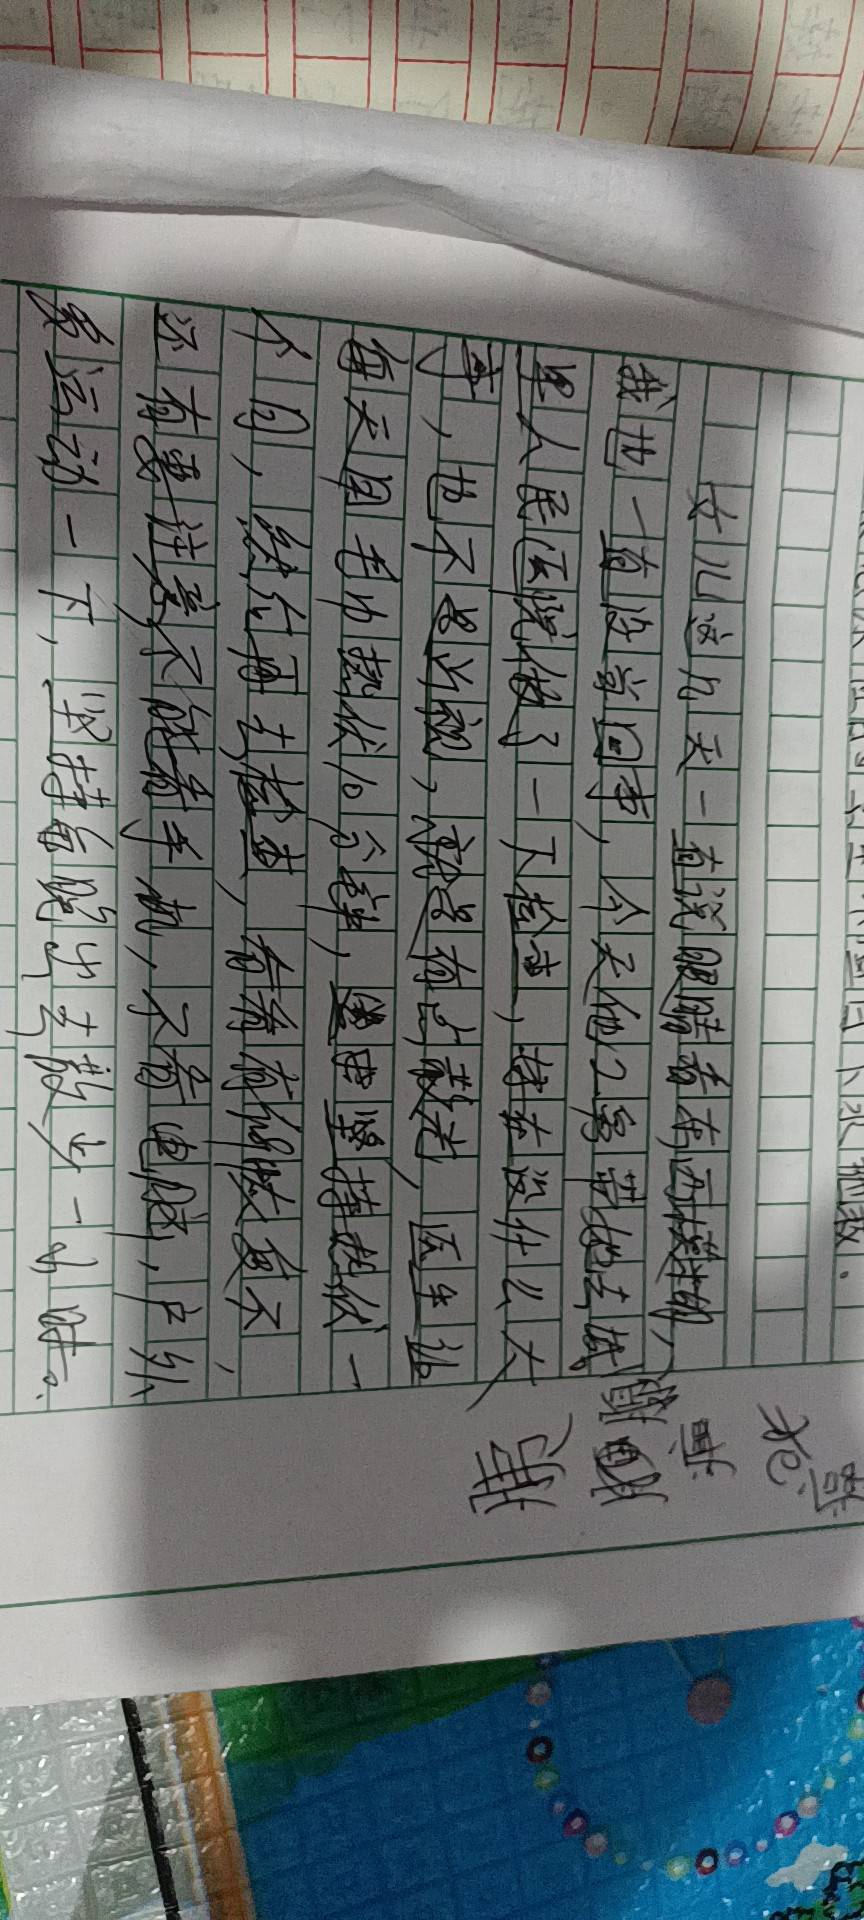 女儿这几天一直说眼睛看东西模糊,
我也一直没当回事,今天他2舅带她去城
里人民医院做了一下检查,持在没什么大
事,也不是近视,就是有点散光,医生让
每天用毛巾热伏10分钟,坚持热伏一
个月,然后再去检查,看看有恢复不,
还有要注意不能看手机,不看电脑,户外
多运动一下,坚持每晚出去散步一小时。